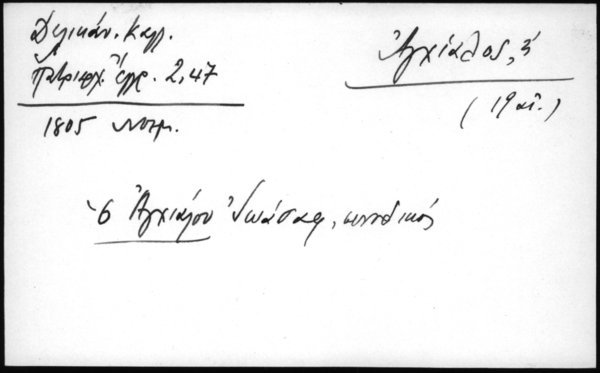 Δελικάν. Καλλ.
Πατριαρχ. Ἔγγρ. 2,47
1805 Νοεμ.
Ἀγχίαλος, ἡ
(19 αἰ.)
ὁ Ἀγχιάλου Ἰωάσαφ, συνοδικός